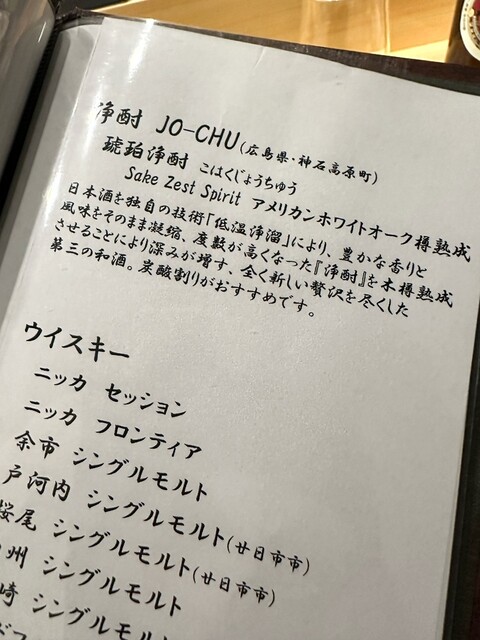 浄酎 JO-CHU(広島県・神石高原町)
琥珀浄酎 こはくじょうちゅう
Sake Zest Spirit アメリカンホワイトオーク樽熟成
日本酒を独自の技術「低温浄溜」により、豊かな香りと
風味をそのまま凝縮、度数が高くなった『浄酎』を木樽熟成
させることにより深みが増す、全く新しい贅沢を尽くした
第三の和酒。炭酸割りがおすすめです。
ウイスキー
ニッカ セッション
ニッカ フロンティア
余市 シングルモルト
戸河内 シングルモルト(廿日市市)
桜尾 シングルモルト(廿日市市)
州 シングルモルト
崎 シングルモルト